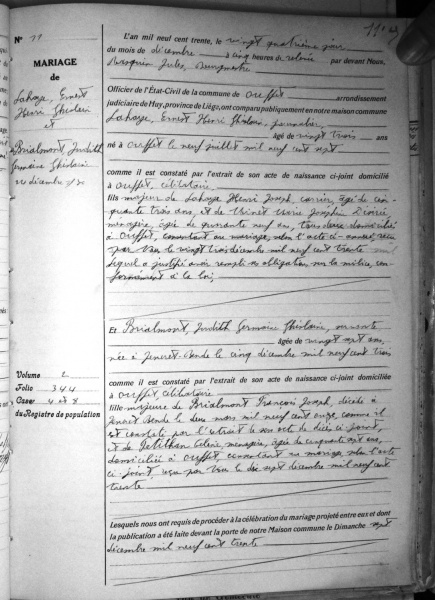 N° 11
MARIAGE
de
Lahaye, Ernest
Henri Ghislain
et
Brialmont Judith
Germaine Ghislaine
24 décembre 1930
Volume 2
Folio 344
Case 4 et 8
du Registre de population
L'an mil neuf cent trente, le vingt quatrième jour
du mois de décembre à cinq heures de relevée par devant Nous,
Jules, Bourgmestre
Officier de l'État-Civil de la commune de Ouffet arrondissement
judiciaire de Huy, province de Liège, ont comparu publiquement en notre maison commune
Lahaye, Ernest Henri Ghislain, journalier,
âgé de vingt trois ans
né à Ouffet le neuf juillet mil neuf cent sept
comme il est constaté par l'extrait de son acte de naissance ci-joint domicilié
à Ouffet, célibataire
fils majeur de Lahaye Henri Joseph, carrier, âgé de cin-
quante trois ans, et de Marie Joséphine Désirée
ménagère, âgée de quarante neuf ans, tous deux domiciliés
à Ouffet, consentant au mariage, selon l'acte ci-annexé, reçu
par Nous le vingt trois décembre mil neuf cent trente
lequel a justifié avoir rempli ses obligations sur la milice, con-
formément à la loi,
Et Brialmont, Judith Germaine Ghislaine, servante
âgée de vingt sept ans,
née à Jeneret-Bende le cinq décembre mil neuf cent trois
comme il est constaté par l'extrait de son acte de naissance ci-joint domiciliée
à Ouffet, célibataire
fille majeure de Brialmont François Joseph, décédé à
Jeneret Bende le deux mars mil neuf cent onze, comme il
est constaté par l'extrait de son acte de décès ci-joint,
et de Célérie, ménagère, âgée de cinquante sept ans,
domiciliée à Ouffet, consentant au mariage, selon l'acte
ci-joint, reçu par Nous le dix sept décembre mil neuf cent
trente
Lesquels nous ont requis de procéder à la célébration du mariage projeté entre eux et dont
la publication a été faite devant la porte de notre Maison commune le Dimanche sept
décembre mil neuf cent trente